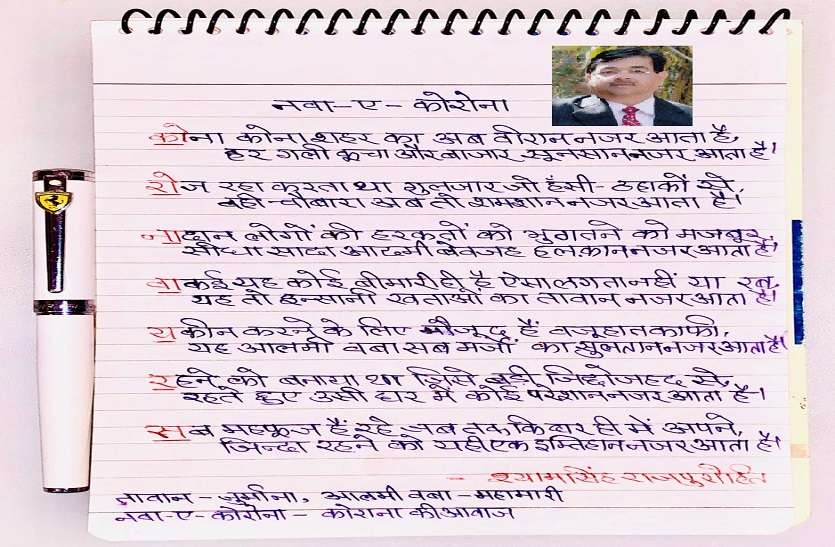 नवा-ए-कोरोना
कोना कोना शहर का अब वीरान नजर आता है,
हर गली कूचा और बाजार सूनसान नजर आता है।
रोज रहा करता था गुलजार जो हँसी-ठहाकों से,
वही-चौबारा अब तो शमशान नजर आता है।
नादान लोगों की हरकतों को भुगतने को मजबूर,
सीधा सादा आदमी बेवजह हलकान नजर आता है।
वाकई यह कोई बीमारी ही है ऐसा लगता नहीं या रब,
यह तो इन्सानी खताओं का तावान नजर आता है।
यकीन करने के लिए मौजूद हैं वजूहात काफी,
यह आलमी वबा सब मर्जों का सुलतान नजर आता है।
रहने को बनाया था जिसे बड़ी जिद्दोजहद से,
रहते हुए उसी घर में कोई परेशान नजर आता है।
सब महफूज हैं रहे जब तक कि घर ही में अपने,
जिन्दा रहने को यही एक इम्तिहान नजर आता है।
- श्यामसिंह राजपुरोहित
तावान - जुर्माना, आलमी वबा - महामारी
नवा-ए-कोरोना - कोराना की आवाज